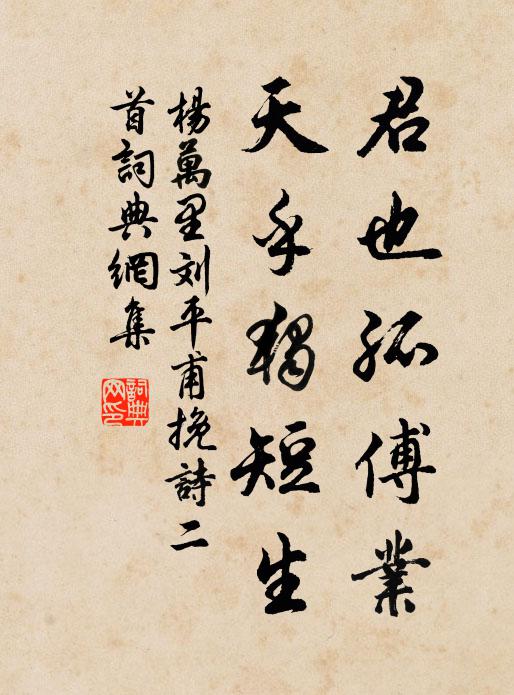 君也孤傅業
天乎獨短生
楊萬里刘平甫挽詩二
首詞典網集
詞典
网印